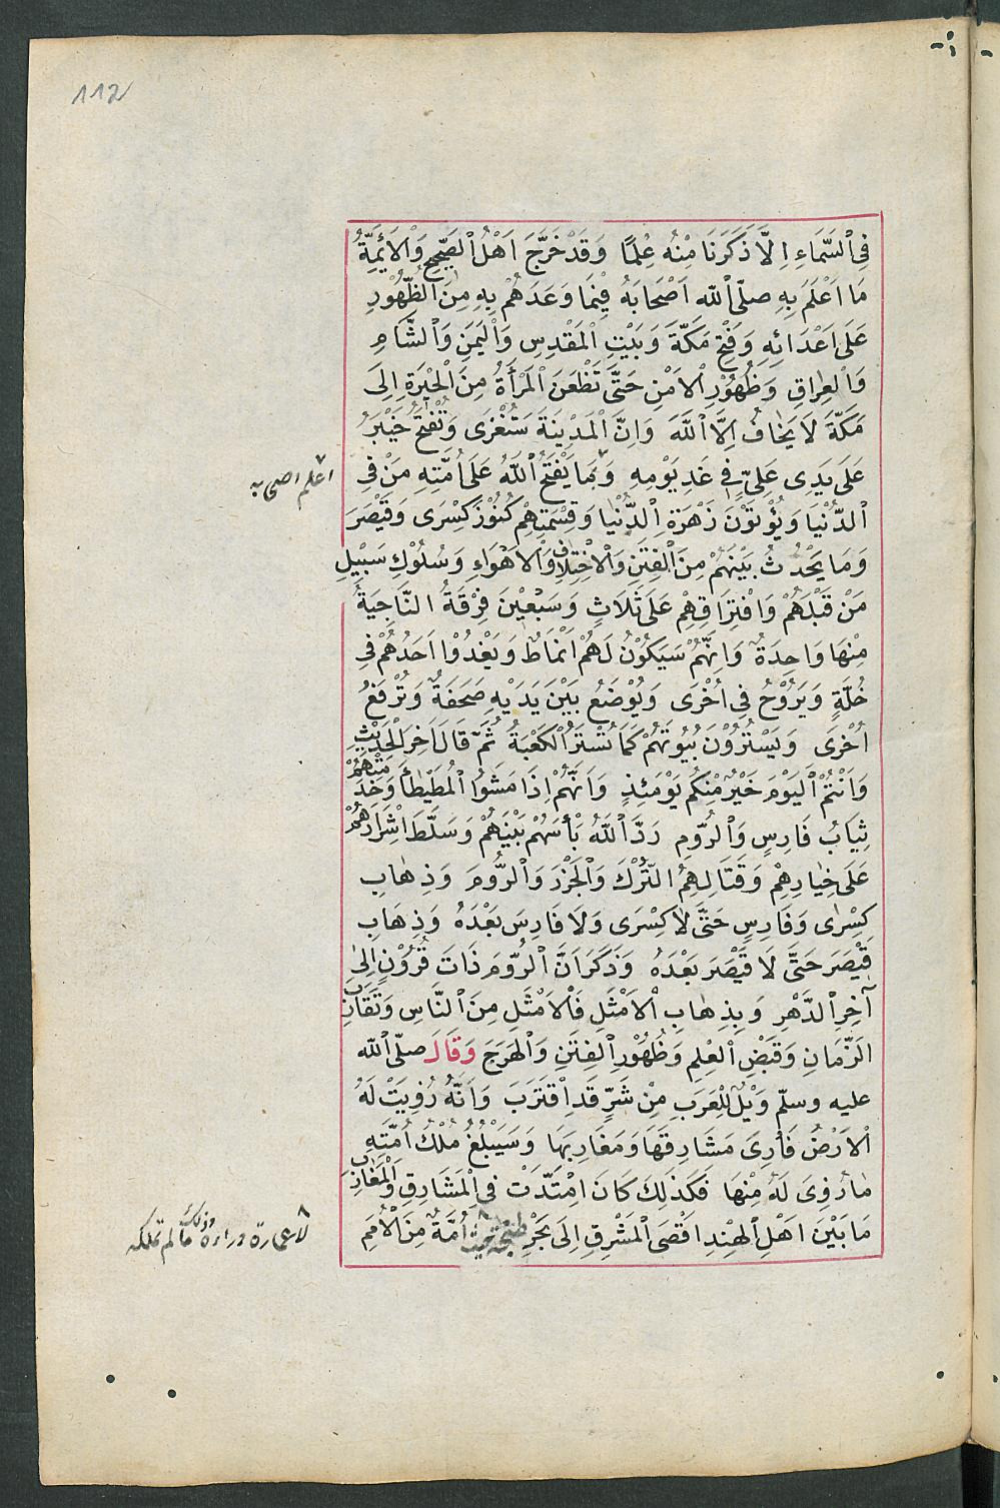 112
فِي ٱلسَّمَاءِ اِلَّا ذَكَرَنَا مِنْهُ عِلْمًا وَقَدْ خَرَّجَ اَهْلُ ٱلصَّحِيحِ وَٱلْاَئِمَّةُ
مَا اَعْلَمَ بِهِ صلّى ٱللّه اَصْحَابَهُ فِيْمَا وَعَدَهُمْ بِهِ مِنَ ٱلظُّهُوْرِ
عَلَى اَعْدَائِهِ وَفَتْحِ مَكَّةَ وَبَيْتِ ٱلْمَقْدِسِ وَٱلْيَمَنِ وَٱلشَّامِ
وَٱلْعِرَاقِ وَظُهُوْرِ ٱلْاَمْنِ حَتَّى تَظْعَنَ ٱلْمَرْأَةُ مِنَ ٱلْحِيْرَةِ اِلَى
مَكَّةَ لَا يَخَافُ اِلَّا ٱللّٰهَ وَاِنَّ ٱلْمَدِيْنَةَ سَتُغْزَى وَتُفْتَحُ خَيْبَرُ
عَلَى يَدِى عَلِىٍّ فِى غَدِ يَوْمِهِ وَبِمَا يَفْتَحُ ٱللّٰهُ عَلَى اُمَّتِهِ مَنْ فِي
اعلم اصحابه
ٱلدُّنْيَا وَيُؤْتَوْنَ زَهْرَةِ ٱلدُّنْيَا وَقِسْمَتِهِمْ كُنُوْزَ كِسْرَى وَقَيْصَرَ
وَمَا يَحْدُثُ بَيْنَهُمْ مِنَ ٱلْفِتَنِ وَٱلْاِخْتِلَافِ وَٱلْاَهْوَاءِ وَسُلُوْكِ سَبِيْلِ
مَنْ قَبْلَهُمْ وَافْتِرَاقِهِمْ عَلَى ثَلَاثٍ وَسَبْعِيْنَ فِرْقَةً النَّاجِيَةُ
مِنْهَا وَاحِدَةٌ وَاِنَّهُمْ سَيَكُوْنُ لَهُمْ اَنْمَاطٌ وَيَغْدُوْا اَحَدُهُمْ فِي
حُلَّةٍ وَيَرُوْحُ فِي اُخْرَى وَيُوْضَعُ بَيْنَ يَدَيْهِ صَحَفَةٌ وَتُرْفَعُ
اُخْرَى وَيَسْتُرُوْنَ بُيُوتَهُمْ كَمَا تُسْتَرُ ٱلْكَعْبَةُ ثُمَّ قَالَ اٰخِرَ ٱلْحَدِيْثِ
وَاَنْتُمُ ٱلْيَوْمَ خَيْرٌ مِنْكُمْ يَوْمَئِذٍ وَاَنَّهُمْ اِذَا مَشَوُا ٱلْمُطَيْطَأَ وَخَدَمَتْهُمْ
ثِيَابُ فَارِسٍ وَٱلرُّومِ رَدَّ ٱللّٰهُ بَأْسَهُمْ بَيْنَهُمْ وَسَلَّطَ شِرَارَهُمْ
عَلَى خِيَارِهِمْ وَقِتَالِهِمُ التُّرْكَ وَٱلْخَزَرَ وَٱلرُّومَ وَذِهَابِ
كِسْرٰى وَفَارِسٍ حَتَّى لَا كِسْرَى وَلَا فَارِسَ بَعْدَهُ وَذِهَابِ
قَيْصَرَ حَتَّى لَا قَيْصَرَ بَعْدَهُ وَذَكَرَ اَنَّ ٱلرُّومَ ذَاتَ قُرُوْنٍ اِلَى
آخِرِ ٱلدَّهْرِ وَبِذِهَابِ ٱلْاَمْثَلِ فَٱلْاَمْثَلِ مِنَ ٱلنَّاسِ وَتَقَارُبِ
الزَّمَانِ وَقَبْضِ ٱلْعِلْمِ وَظُهُوْرِ ٱلْفِتَنِ وَٱلْهَرَجِ وَقَالَ صلّى ٱللّه
عليه وسلّم وَيْلٌ لِلْعَرَبِ مِنْ شَرٍّ قَدِ ٱقْتَرَبَ وَاَنَّهُ زُوِيَتْ لَهُ
ٱلْاَرْضُ فَأُرِىَ مَشَارِقَهَا وَمَغَارِبَهَا وَسَيَبْلُغُ مُلْكُ اُمَّتِهِ
مَا زُوِىَ لَهُ مِنْهَا فَكَذٰلِكَ كَانَ امْتَدَّتْ فِي ٱلْمَشَارِقِ وَٱلْمَغَارِبِ
مَا بَيْنَ اَهْلِ ٱلْهِنْدِ اَقْصَى ٱلْمَشْرِقِ اِلَى بَحْرِ طنجة حيث اُمَّةٌ مِنَ ٱلْاُمَمِ
لا عمارة وراءه وذلك ما لم تملكه